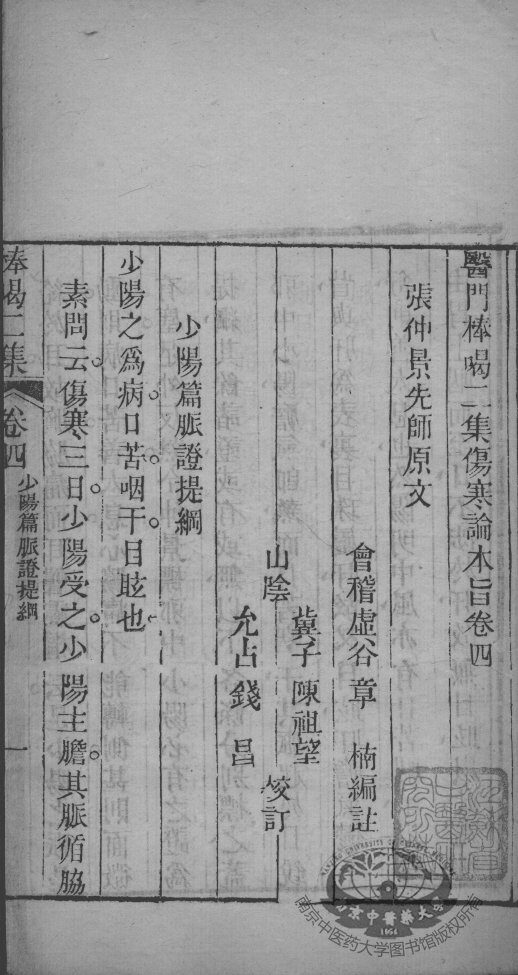 醫門棒喝二集傷寒論本旨卷四
張仲景先師原文
會稽虛谷章 楠編註
山陰
冀子陳祖望
允占錢 昌
校訂
少陽篇脈證提綱
少陽之為病。口苦。咽干。目眩也
素問云。傷寒三日。少陽受之。少陽主膽。其脈循脇
棒喝二集 卷四 少陽篇脈證提綱 一
南京中医药大学图书馆版权所有
南京中醫藥大學
1954